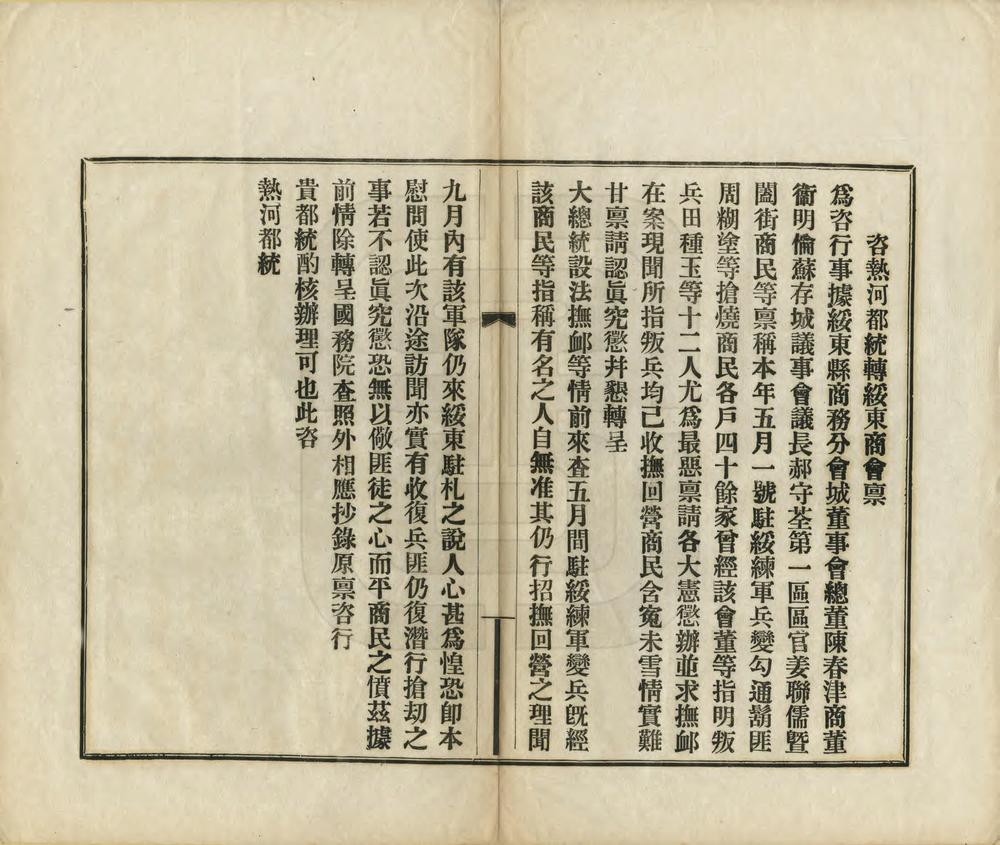 咨熱河都統轉綏東商會禀
爲咨行事據綏東縣商務分會城董事會總董陳春津商董
衞明倫蘇存城議事會議長郝守荃第一區區官姜聯儒曁
闔街商民等禀稱本年五月一號駐綏練軍兵變勾通鬍匪
周糊塗等搶燒商民各戶四十餘家曾經該會董等指明叛
兵田種玉等十二人尤爲最惡禀請各大憲懲辦並求撫卹
在案現聞所指叛兵均已收撫回營商民含寃未雪情實難
甘禀請認眞究懲幷懇轉呈
大總統設法撫卹等情前來查五月間駐綏練軍變兵旣經
該商民等指稱有名之人自無准其仍行招撫回營之理聞
九月內有該軍隊仍來綏東駐札之說人心甚爲惶恐卽本
慰問使此次沿途訪聞亦實有收復兵匪仍復潛行搶刧之
事若不認眞究懲恐無以儆匪徒之心而平商民之憤茲據
前情除轉呈國務院查照外相應抄錄原禀咨行
貴都統酌核辦理可也此咨
熱河都統